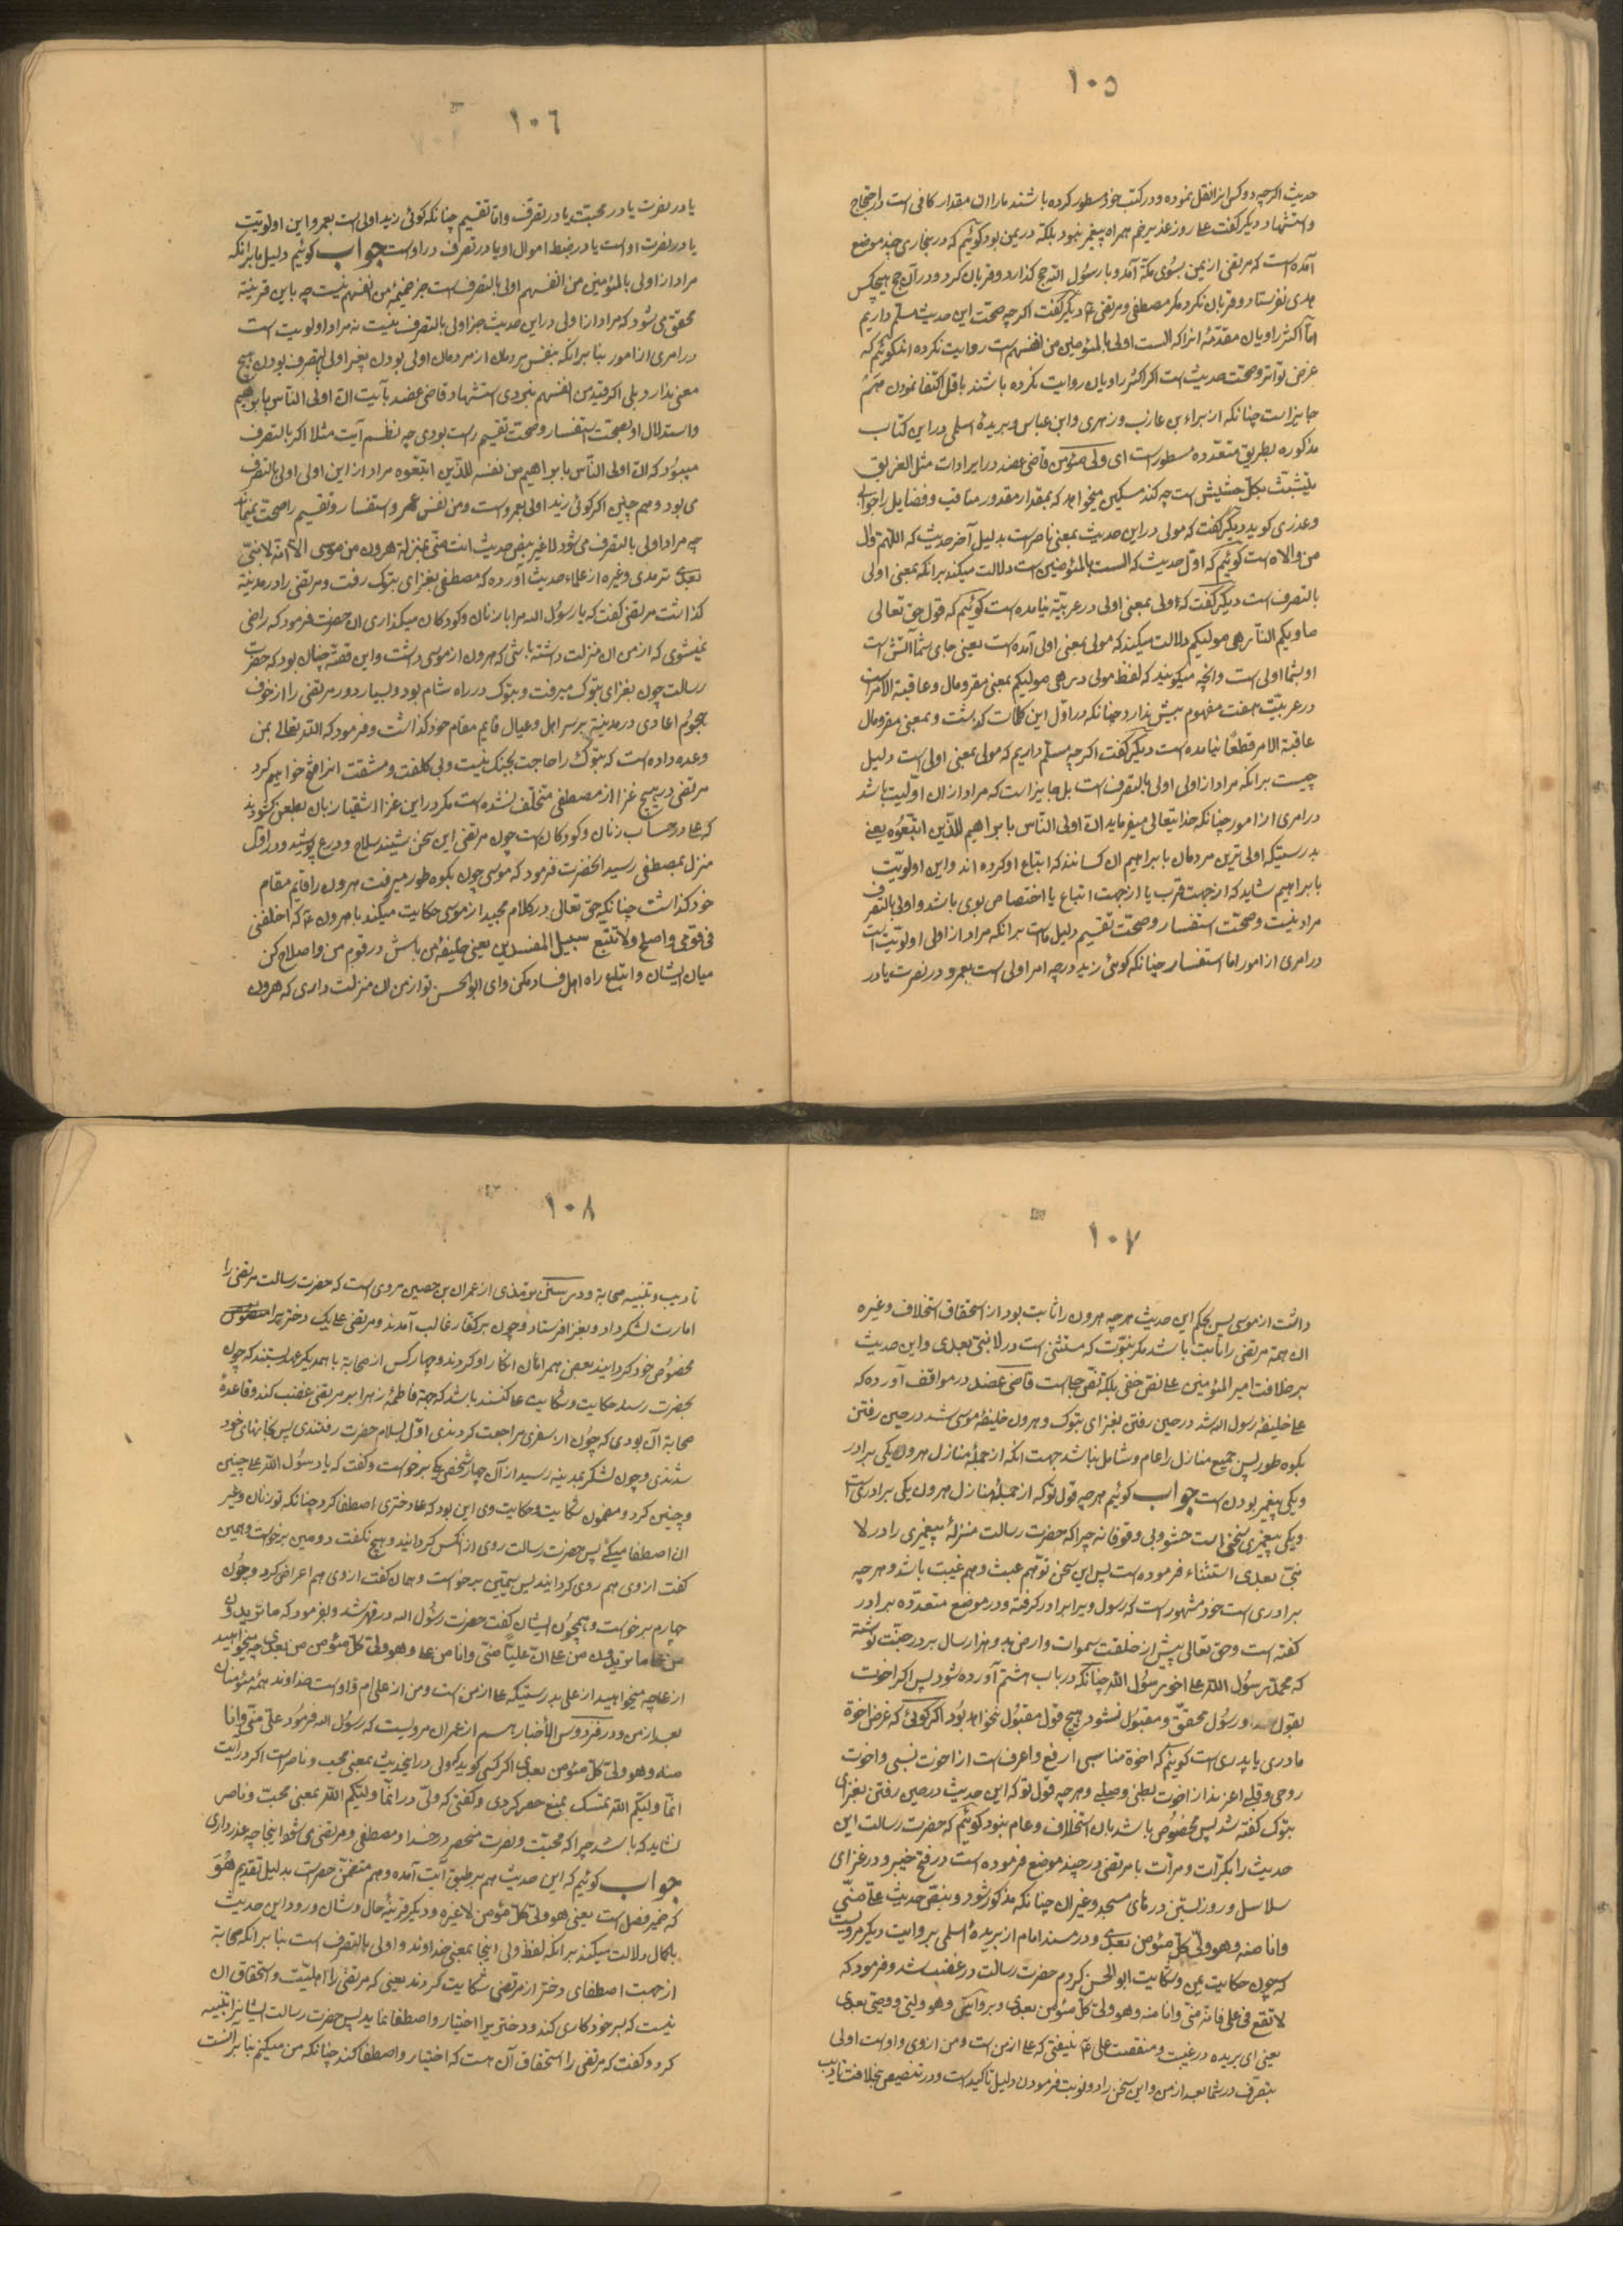 ١٠٥
حدیث اکرچه دو کس انرا نقل نموده و در کتب خود مسطور کرده باشند ما را ان مقدار کافی است در احتجاج
و استشهاد دیکر کفت علی روز غدیر خم همراه پیغمبر نبود بلکه در یمن بود کوئیم که در بخاری چند موضع
آمده است که مرتضی از یمن بسوی مکه آمد و با رسول الله حج کذارد و قربان کرد و در آن حج هیچکس
هدی نفرستاد و قربان نکرد مکر مصطفی و مرتضی دیکر کفت اکرچه صحت این حدیث مسلم داریم
اما اکثر راویان مقدمهٔ انرا که الست اولی بالمؤمنین من انفسهم است روایت نکرده اند کوئیم که
غرض تواتر و صحت حدیث است اکر اکثر راویان روایت نکرده باشند باقل اکتفا نمودن هم
جایز است چنانکه از براء بن عازب و زهری و ابن عباس و بریدهٔ اسلمی در این کتاب
مذکوره بطریق متعدده مسطور است ای ولی مؤمن قاضی عضد در ایرادات مثل الغریق
یتشبث بکل حشیش است چه کند مسکین میخواهد که بمقدار مقدور مناقب و فضایل را جوابی
و عذری کوید دیکر کفت که مولی در این حدیث بمعنی ناصر است بدلیل آخر حدیث که اللهم وال
من والاه است کوئیم که اول حدیث که الست بالمؤمنین است دلالت میکند برانکه بمعنی اولی
بالتصرف است دیکر کفت که اولی بمعنی اولی در عربیة نیامده است کوئیم که قول حق تعالی
ماویکم النار هی مولیکم دلالت میکند که مولی بمعنی اولی آمده است یعنی جای شما آتش است
او بشما اولی است وانچه میکویند که لفظ مولی در هی مولیکم بمعنی مقر و مال و عاقبة الامر است
در عربیت هفت مفهوم بیش ندارد چنانکه در اول این کلمات کذشت و بمعنی مقر و مال
عاقبة الامر قطعًا نیامده است دیکر کفت اکرچه مسلم داریم که مولی بمعنی اولی است دلیل
چیست برانکه مراد از اولی اولی بالتصرف است بل جایز است که مراد از ان اولیت باشد
در امری از امور چنانکه خدایتعالی میفرماید ان اولی الناس بابراهیم للذین اتبعوه یعنی
بدرستیکه اولی ترین مردمان بابراهیم ان کسانند که اتباع او کرده اند و این اولویت
بابراهیم شاید که از جهت قرب یا از جهت اتباع یا اختصاص بوی باشد و اولی بالتصرف
مراد نیست و صحت استفسار و صحت تقسیم دلیل ماست برانکه مراد از اولی اولویت است
در امری از امور اما استفسار چنانکه کوئی زید در چه امر اولی است بعمرو در نصرت یا در
١٠٦
یا در نصرت یا در محبت یا در تصرف و اما تقسیم چنانکه کوئی زید اولی است بعمرو این اولویت
یا در نصرت اوست یا در ضبط اموال او یا در تصرف در اوست جواب کوئیم دلیل ما برانکه
مراد از اولی بالمؤمنین من انفسهم اولی بالتصرف است جز ضمیمهٔ من انفسهم نیست چه باین قرینه
محقق می شود که مراد از اولی در این حدیث جز اولی بالتصرف نیست نه مراد اولویت است
در امری از امور بنا برانکه بنفس مردمان از مردمان اولی بودن بغیر اولی بالتصرف بودن هیچ
معنی ندارد بلی اکر قید من انفسهم نبودی استشهاد قاضی عضد بآیت ان اولی الناس بابراهیم
و استدلال او بصحت استفسار و صحت تقسیم راست بودی چه نظم آیت مثلا اکر بالتصرف
میبود که ان اولی الناس بابراهیم من نفسه للذین اتبعوه مراد از این اولی اولی بالتصرف
می بود و هم چنین اکر کوئی زید اولی بعمرو است و من نفس عمرو استفسار و تقسیم را صحت نمیماند
چه مراد اولی بالتصرف می شود لا غیر حدیث انت منی بمنزلة هرون من موسی الا انه لا نبی
بعدی ترمذی و غیره از علماء حدیث آورده که مصطفی بغزای تبوک رفت و مرتضی را در مدینه
کذاشت مرتضی کفت که یا رسول الله مرا با زنان و کودکان میکذاری ان حضرت فرمود که راضی
نمیشوی که از من ان منزلت داشته باشی که هرون از موسی داشت و این قصه چنان بود که حضرت
رسالت چون بغزای تبوک میرفت و تبوک در راه شام بود و بسیار دور مرتضی را از خوف
هجوم اعادی در مدینه بر سر اهل و عیال قایم مقام خود کذاشت و فرمود که الله تعالی بمن
وعده داده است که تبوک را حاجت بجنک نیست و بی کلفت و مشقت انرا فتح خواهیم کرد
مرتضی در هیچ غزا از مصطفی متخلف نشده است مکر در این غزا اشقیا زبان بطعن کشودند
که علی در حساب زنان و کودکان است چون مرتضی این سخن شنید سلاح و درع پوشید و در اول
منزل بمصطفی رسید انحضرت فرمود که موسی چون بکوه طور میرفت هرون را قایم مقام
خود کذاشت چنانکه حق تعالی در کلام مجید از موسی حکایت میکند با هرون که اخلفنی
فی قومی واصلح ولا تتبع سبیل المفسدین یعنی خلیفهٔ من باش در قوم من و اصلاح کن
میان ایشان و اتباع راه اهل فساد مکن و ای ابو الحسن تو از من ان منزلت داری که هرون
١٠٧
داشت از موسی پس بحکم این حدیث هر چه هرون را ثابت بود از استحقاق استخلاف و غیره
ان همه مرتضی را ثابت باشد مکر نبوت که مستثنی است در لا نبی بعدی و این حدیث
بر خلافت امیر المؤمنین علی نص خفی بلکه نص جلی است قاضی عضد در مواقف آورده که
علی خلیفهٔ رسول الله شد در حین رفتن بغزای تبوک و هرون خلیفهٔ موسی شد در حین رفتن
بکوه طور پس جمیع منازل را عام و شامل نباشد جهت انکه از جملهٔ منازل هرون یکی برادر
و یکی پیغمبر بودن است جواب کوئیم هر چه قول تو که از جملهٔ منازل هرون یکی برادری است
و یکی پیغمبری سخنی است حشو و بی وقوفانه چرا که حضرت رسالت منزلهٔ پیغمبری را در لا
نبی بعدی استثناء فرموده است پس این سخن تو هم عبث و هم غیبت باشد و هر چه
برادری است خود مشهور است که رسول ویرا برادر کرفته و در موضع متعدده برادر
کفته است و حق تعالی پیش از خلقت سموات و ارض بدو هزار سال بر در جنت نوشته
که محمد رسول الله علی اخو رسول الله چنانکه در باب هشتم آورده شود پس اکر اخوت
بقول و رسول محقق و مقبول نشود هیچ قول مقبول نخواهد بود اکر کوئی که غرض اخوة
مادری یا پدری است کوئیم که اخوة مناسبی ارفع و اعرف است از اخوت نسبی و اخوت
روحی و قلبی اعز نذ از اخوت بطنی و صلبی و هر چه قول تو که این حدیث در حین رفتن بغزای
تبوک کفته شد پس مخصوص باشد بان استخلاف و عام نبود کوئیم که حضرت رسالت این
حدیث را بکرّات و مرّات با مرتضی در چند موضع فرموده است در فتح خیبر و در غزای
سلاسل و روز بستن درهای مسجد و غیر ان چنانکه مذکور شود و بنص حدیث علی منی
وانا منه وهو ولی کل مؤمن بعدی و در مسند امام از بریدهٔ اسلمی بروایت دیکر مرویست
که چون حکایت یمن و شکایت ابو الحسن کردم حضرت رسالت در غضب شد و فرمود که
لا تقع فی علی فانه منی وانا منه وهو ولی کل مؤمن بعدی و بروایتی وهو ولیی ووصیی بعدی
یعنی ای بریده در غیبت و منقصت علی نیفتی که علی از من است و من از وی و او است اولی
بتصرف در شما بعد از من و این سخن را دو نوبت فرمودن دلیل تاکید است و در تنصیص بخلافت تادیب
١٠٨
تادیب و تنبیه صحابة و در سنن ترمذی از عمران بن حصین مروی است که حضرت رسالت مرتضی را
امارت لشکر داد و بغزا فرستاد و چون بر کفار غالب آمدند و مرتضی علی یک دختر برا
مخصوص خود کردانید بعض همراهان انکار او کردند و چهار کس از صحابة با همدیکر عهد بستند که چون
بحضرت رسد حکایت و شکایت علی کنند باشد که جهة فاطمهٔ زهرا بر مرتضی غضب کند و قاعدهٔ
صحابة آن بودی که چون از سفری مراجعت کردندی اول بسلام حضرت رفتندی پس بخانهای خود
شدندی و چون لشکر بمدینه رسید از آن چهار شخصی یکی برخواست و کفت که یا رسول الله علی چنین
و چنین کرد و مضمون شکایت و حکایت وی این بود که علی دختری اصطفا کرد چنانکه تو زنان و غیر
ان اصطفا میکنی پس حضرت رسالت روی از انکس کردانید و هیچ نکفت دومین برخواست و همین
کفت از وی هم روی کردانید پس سیمین برخواست و همان کفت از وی هم اعراض کرد و چون
چهارم برخواست و همچون ایشان کفت حضرت رسول الله در قهر شد و بفرمود که ما تریدون
من علی ما تریدون من علی ان علیًا منی وانا من علی وهو ولی کل مؤمن من بعدی چه میخواهید
از علی چه میخواهید از علی بدرستیکه علی از من است و من از علی ام و او است خداوند همهٔ مؤمنان
بعد از من و در فردوس الأخبار باسم از عمران مرویست که رسول الله فرمود علی منی وانا
منه وهو ولی کل مؤمن بعدی اکر کسی کوید که ولی در این حدیث بمعنی محب و ناصر است اکر در آیت
انما ولیکم الله تمسک بمنع حصر کردی و کفتی که ولی در انما ولیکم الله بمعنی محبّ و ناصر
نشاید که باشد چرا که محبت و نصرت منحصر در خدا و مصطفی و مرتضی می شود اینجا چه عذر داری
جواب کوئیم که این حدیث هم بر طبق آیت آمده و هم متضمن حصر است بدلیل تقدیم هو
که ضمیر فصل است یعنی هو ولی کل مؤمن لا غیره و دیکر قرینهٔ حال و شان ورود این حدیث
بکمال دلالت میکند برانکه لفظ ولی اینجا بمعنی خداوند و اولی بالتصرف است بنا برانکه صحابة
از جهت اصطفای دختر از مرتضی شکایت کردند یعنی که مرتضی را اهلیت و استحقاق ان
نیست که بسر خود کاری کند و دختر برا اختیار و اصطفا نماید پس حضرت رسالت ایشانرا تنبیه
کرد و کفت که مرتضی را استحقاق آن هست که اختیار و اصطفا کند چنانکه من میکنم بنا